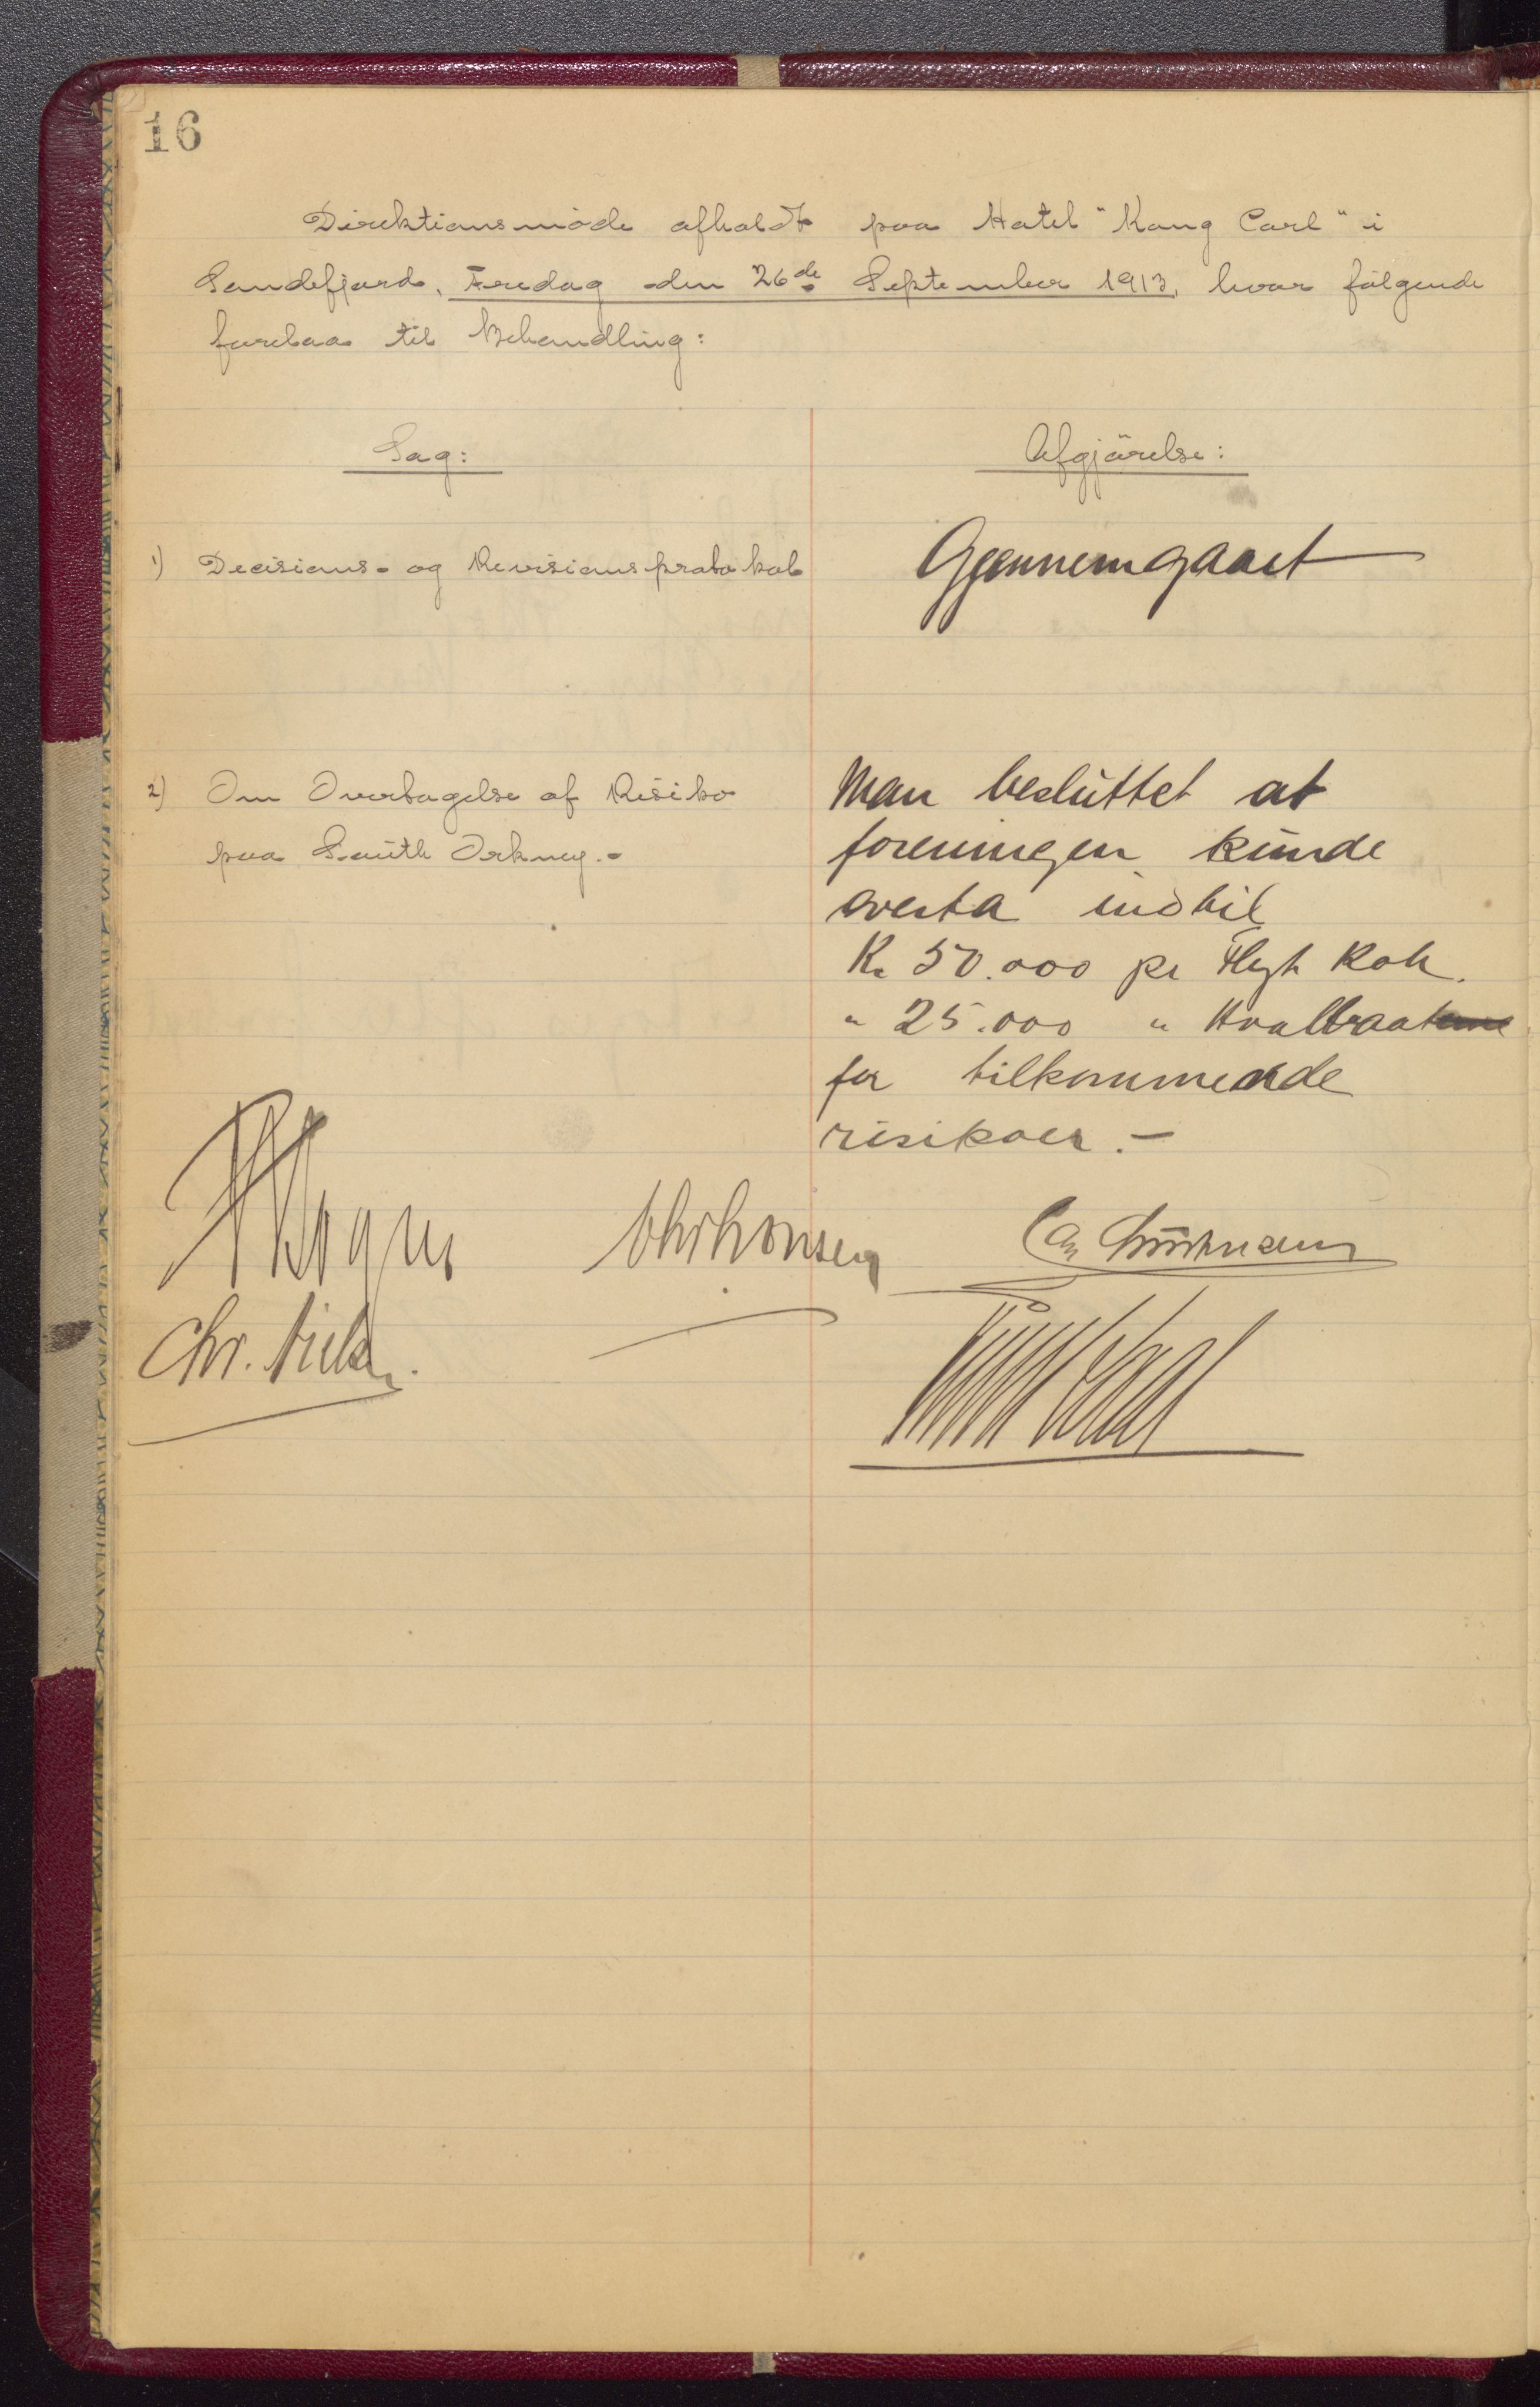 16
Direktionsmöde afholdt paa Hotel "Kong Carl" i
Sandefjord, Fredag den 26de September 1913, hvor følgende
forelaa til Behandling:
Sag:
Afgjörelse:
1) Decisions- og Revisionsprotokol
Gjennemgaaet
2) Om Overtagelse af Risiko
paa South Orkney.-
Man besluttet at
foreningen kunde
overta indtil
Kr 50.000 pr Flyt Kok.
" 25.000 " Hvalbaaterne
for tilkommende
risikoer.-
Chr. Nielsen.